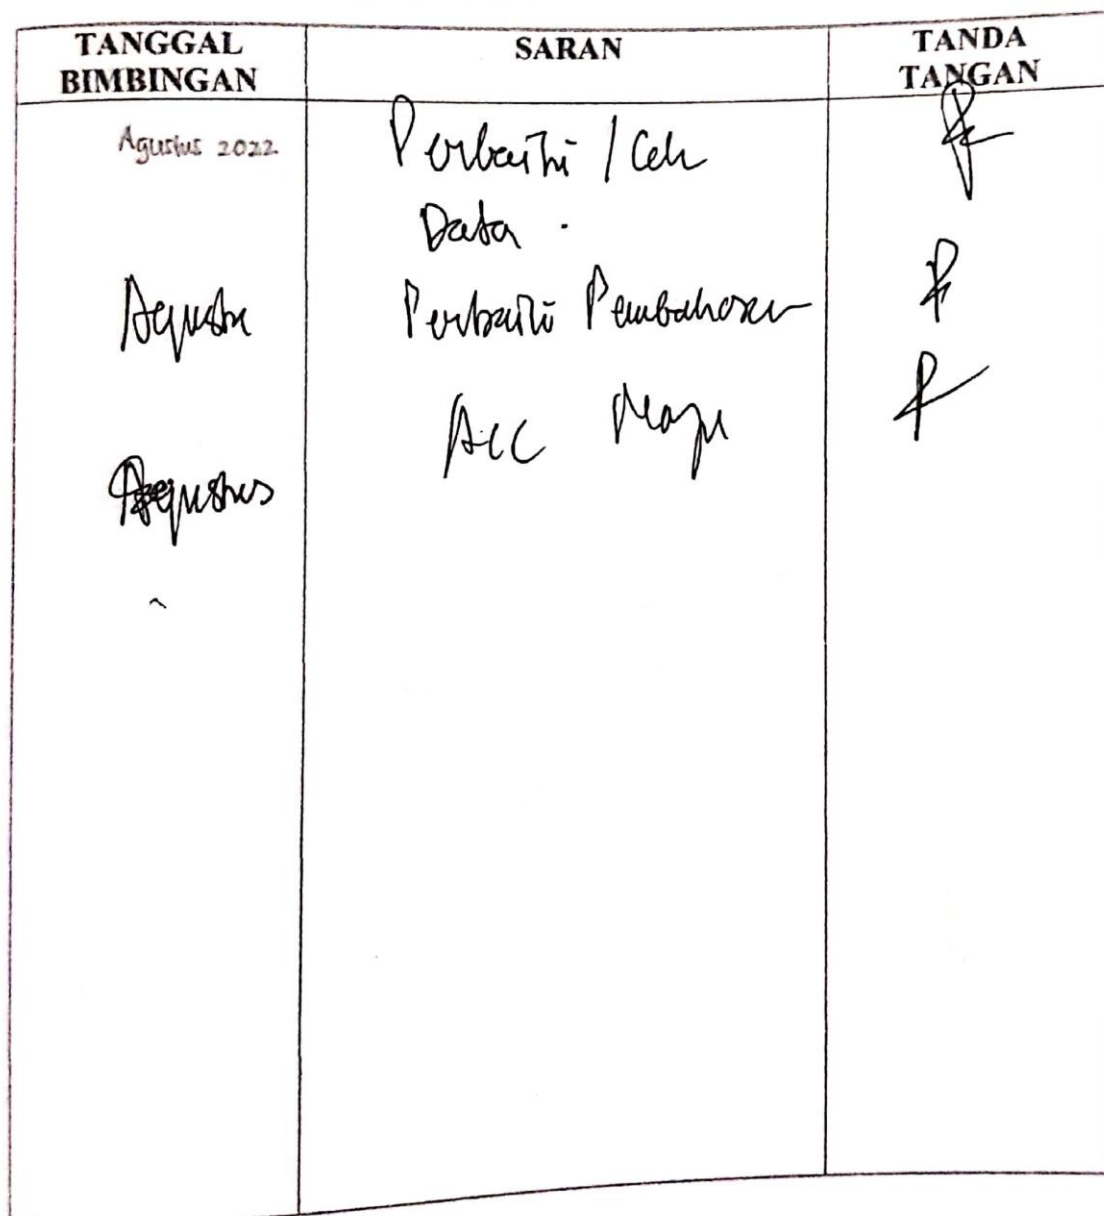 TANGGAL BIMBINGAN
SARAN
TANDA TANGAN
Agustus 2022
Perbaiki / Cek
Data .
Agustus
Perbaiki Pembahasan
ACC Maju
Agustus